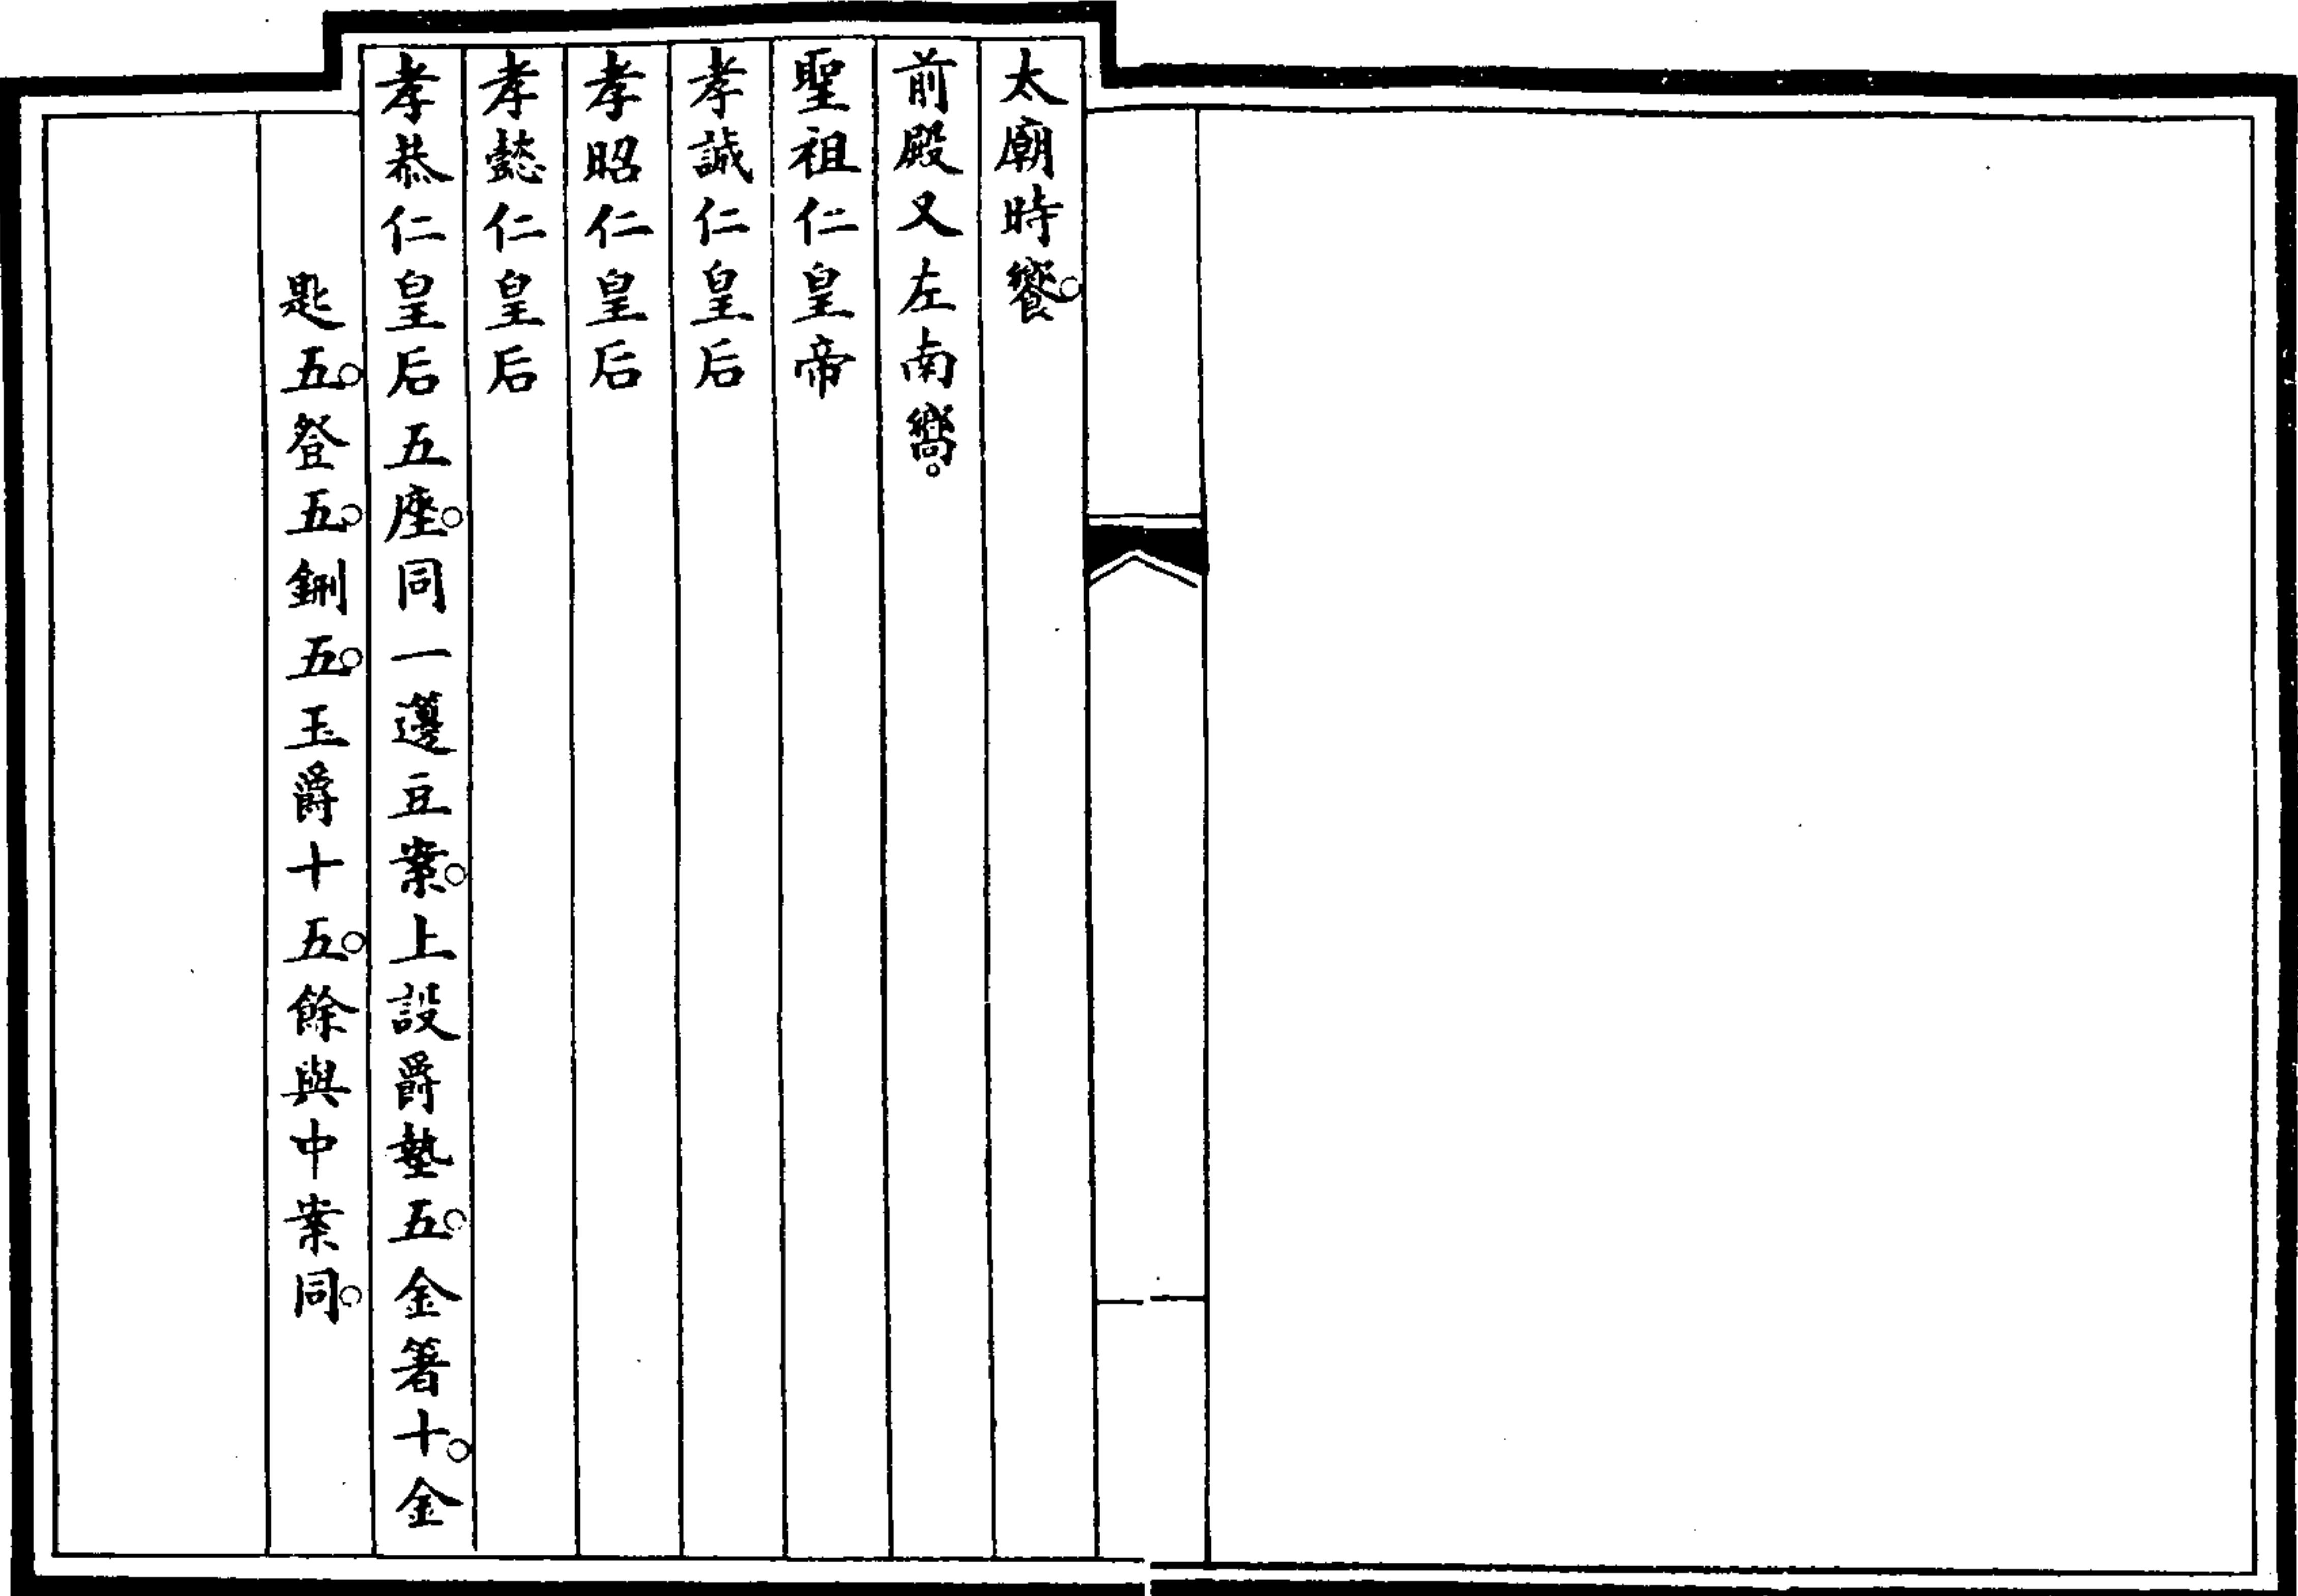 太廟時饗。
前殿又左南嚮。
聖祖仁皇帝
孝誠仁皇后
孝昭仁皇后
孝懿仁皇后
孝恭仁皇后五座。同一籩豆案。上設爵墊五。金箸十。金
匙五。登五。鉶五。玉爵十五。餘與中案同。